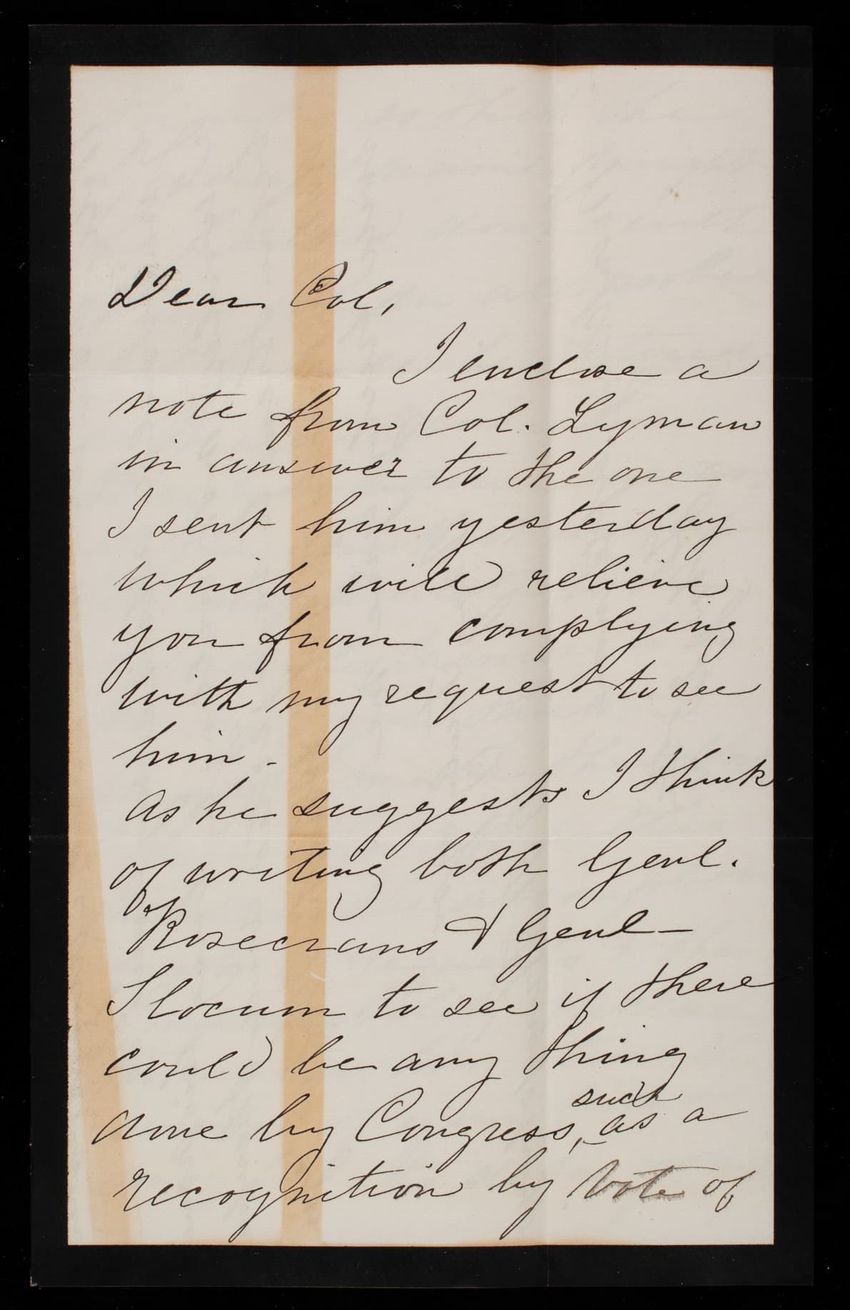 Dear Col,
I enclose a
note from Col. Lyman
in answer to the one
I sent him yesterday
which will relieve
you from complying
with my request to see
him -
As he suggests I think
of writing both Genl.
Rosecrans & Genl
Slocum to see if there
could be any thing
done by Congress, such as a
recognition by vote of